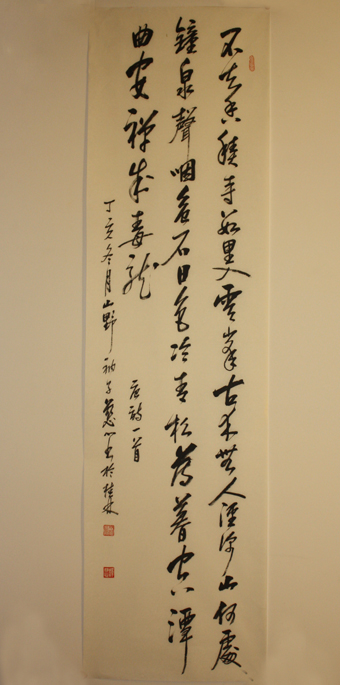 不知香積寺數里入雲峯古木無人徑深山何處
鐘泉聲咽危石日色冷青松薄暮空潭
曲安禪制毒龍
唐詩一首
丁亥冬月山野衲子慧心書於桂林